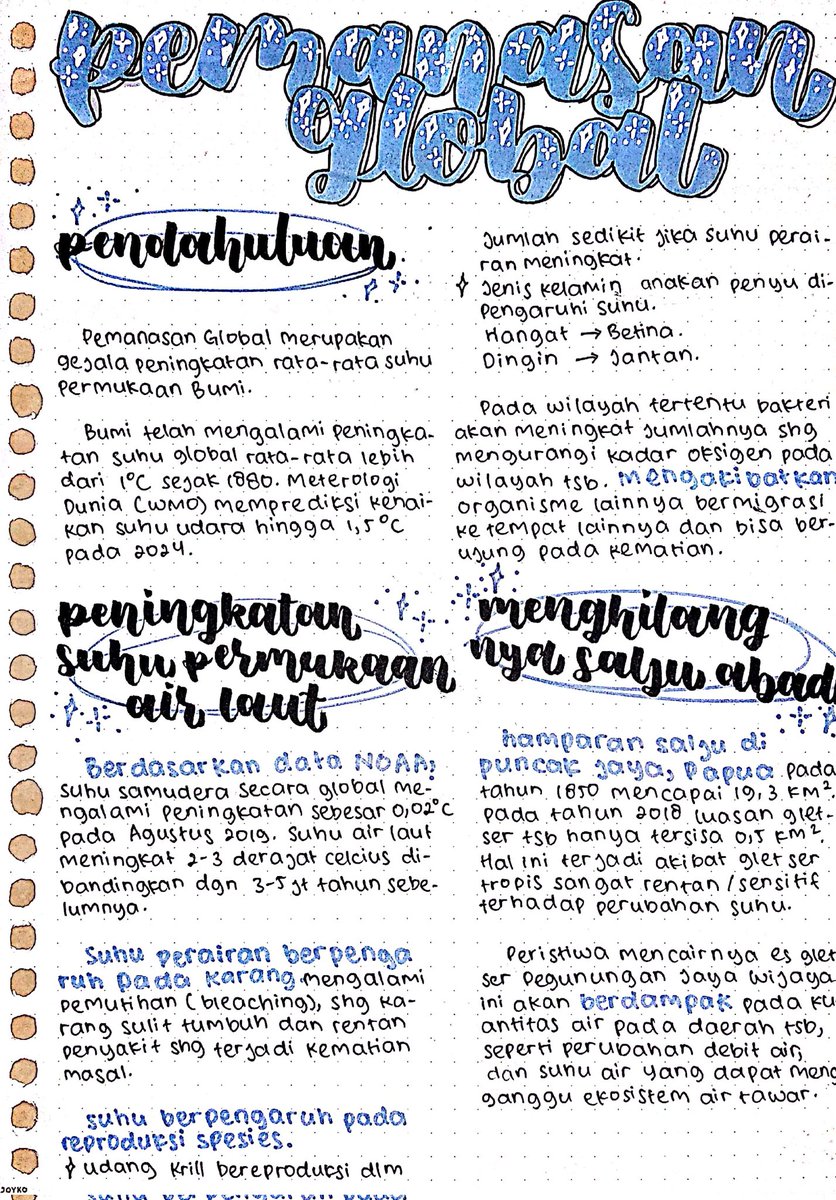 pemanasan
global
pendahuluan
Pemanasan Global merupakan
gejala peningkatan rata-rata suhu
permukaan Bumi.
Bumi telah mengalami peningka-
tan suhu global rata-rata lebih
dari 1°C sejak 1880. Meterologi
Dunia (WMO) memprediksi kenai-
kan suhu udara hingga 1,5°C
pada 2024.
peningkatan
suhu permukaan
air laut
Berdasarkan data NOAA,
suhu samudera secara global me-
ngalami peningkatan sebesar 0,02°C
pada Agustus 2019. Suhu air laut
meningkat 2-3 derajat celcius di-
bandingkan dgn 3-5 jt tahun sebe-
lumnya.
Suhu perairan berpenga
ruh pada karang mengalami
pemutihan (bleaching), shg ka-
rang sulit tumbuh dan rentan
penyakit shg terjadi kematian
masal.
suhu berpengaruh pada
reproduksi spesies.
udang krill bereproduksi dlm
JOYKO
Jumlah sedikit jika suhu perai-
ran meningkat.
Jenis kelamin anakan penyu di-
pengaruhi suhu.
Hangat → Betina.
Dingin → Jantan.
Pada wilayah tertentu bakteri
akan meningkat jumlahnya shg
mengurangi kadar oksigen pada
wilayah tsb. mengakibatkan
organisme lainnya bermigrasi
ke tempat lainnya dan bisa ber-
ujung pada kematian.
menghilang
nya salju abad
hamparan salju di
puncak jaya, papua pada
tahun 1850 mencapai 19,3 km².
pada tahun 2018 luasan glet-
ser tsb hanya tersisa 0,5 km².
Hal ini terjadi akibat gletser
tropis sangat rentan/sensitif
terhadap perubahan suhu.
Peristiwa mencairnya es glet
ser pegunungan Jaya wijaya
ini akan berdampak pada ku
antitas air pada daerah tsb,
seperti perubahan debit air,
dan suhu air yang dapat meng
ganggu ekosistem air tawar.